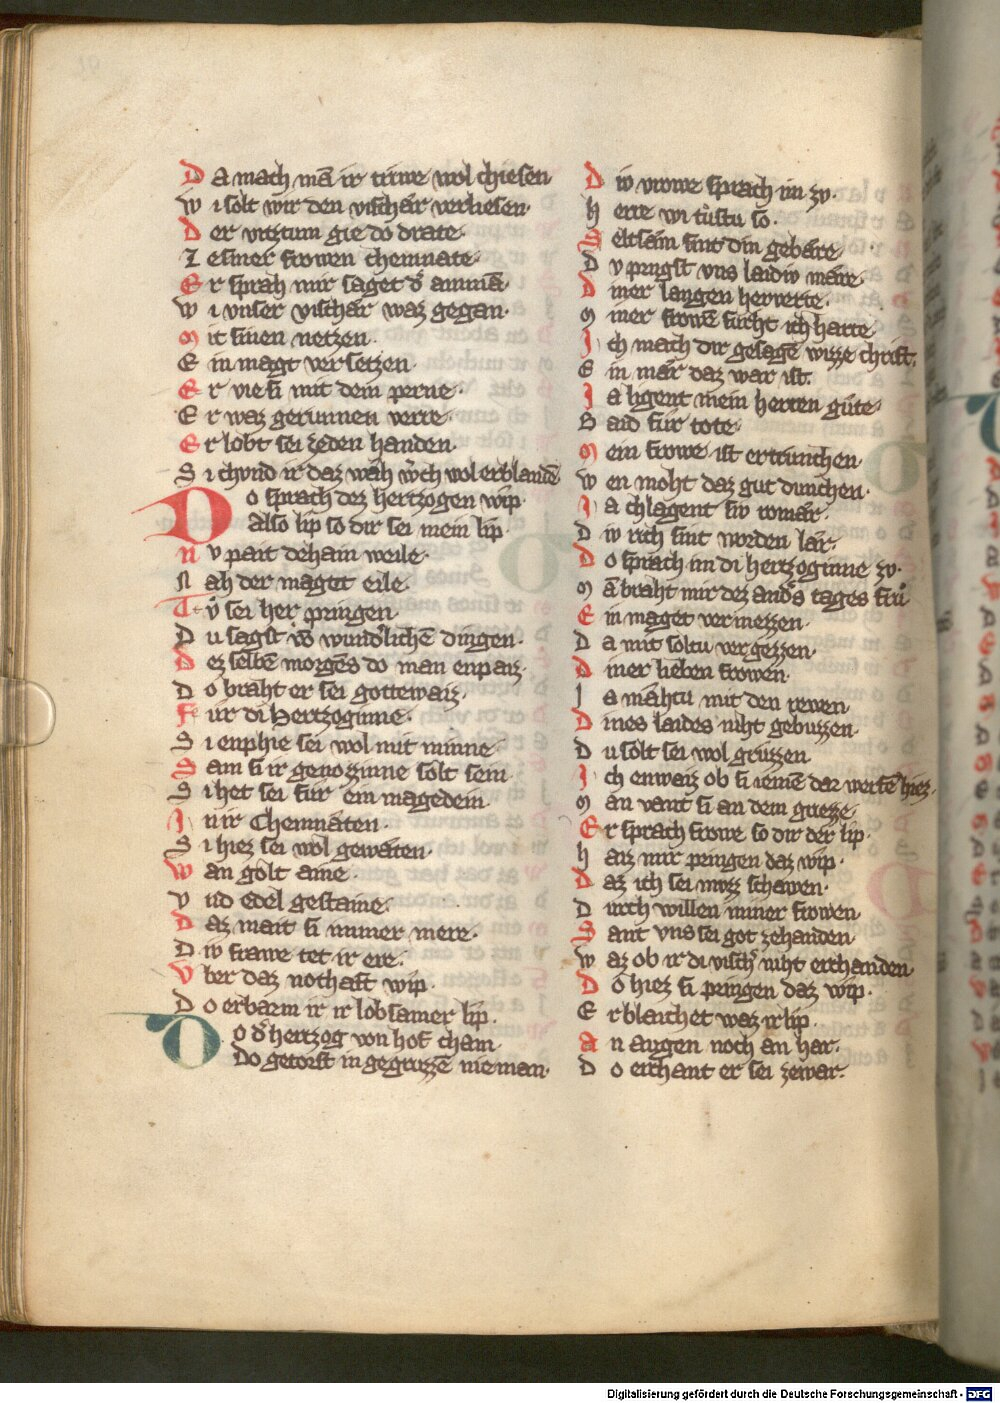 D a mach mā ir triwe wol chiesen
W i solt wir den vischár verliesen·
D er vitztum gie do drate·
Z e siner frowen chemnate·
E r sprah mir saget d͛ ammā·
W i vnser vischár waz gegan·
M it sinen netzen·
E in magt versetzen·
E r vie si mit dem perne·
E r waz gerunnen verre·
E r lobt sei zeden handen·
S i chvnd ir daz wáh w͛ch wol erblandē·
D o sprach dez hertzogen wip·
also lip so dir sei mein lip·
N v pait dehain weile·
N ah der maget eile·
T v̊ sei her pringen·
D u sagst vō wund͛lichē dingen·
D ez selbē morgēs do man enpaiz·
D o braht er sei gottewaiz·
F ur di Hertzoginne·
S i enphie sei wol mit minne·
S am si ir genozzinne solt sein
S i het sei fur ein magedein
J n ir Chemnáten·
S i hiez sei wol gewáten·
W an golt aine·
V nd edel gestaine·
D az mait si immer mere·
D iv frawe tet ir ere·
V ber daz nothaft wip·
D o erbarm ir ir lobsamer lip·
D o d͛ hertzog von hof cham
Do getorst in gegruzzē nieman·
D iv vrowe sprach im zv·
H erre wi tůstu so·
S eltsám sint din gebáre·
D v pringst vns laidiv máre·
D iner langen herverte·
M iner frowē furht ich harte·
J ch mach dir gesagē wizze christ·
E in már daz war ist·
J a ligent mein herren gůte·
B aid fúr tote·
M ein frowe ist ertrunchen·
W en moht daz gut dunchen·
J a chlagent siv romár·
D iv rich sint worden lár·
D o sprach im di hertzoginne zv·
M ā braht mir dez and͛s tages frů
E in maget vermezzen·
D a mit soltu vergezzen·
D iner lieben frowen·
J a máhtu mit den rewen
D ines laides niht gebuzzen·
D u solt sei wol gruzzen
J ch enwaiz ob si iemē dar werfē hiez·
M an vant si an dem griezze·
E r sprach frowe so dir der lip·
H aiz mir pringen daz wip·
D az ich sei muzz schawen·
D urch willen miner frowen
S ant vns sei got zehanden·
W az ob ir di visch͛ niht erchanden
D o hiez si pringen daz wip·
E rblaichet waz ir lip
A n augen noch an har·
D o erchant er sei zewar·
Digitalisierung gefördert durch die Deutsche Forschungsgemeinschaft - DFG